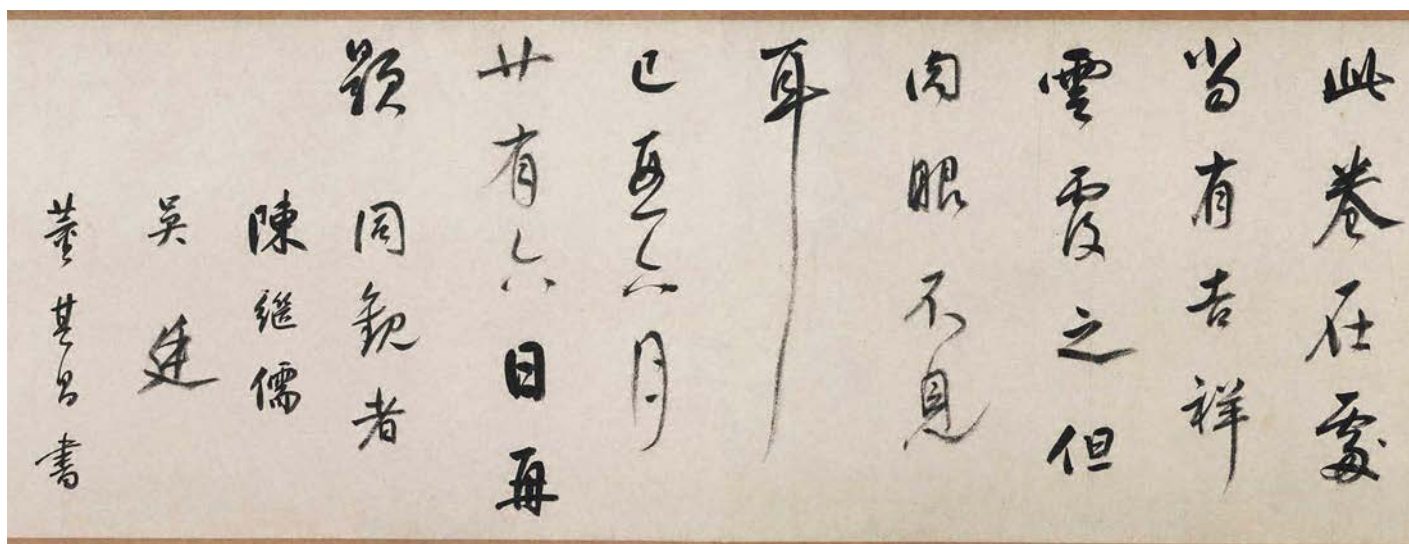 此卷在處
當有吉祥
雲覆之但
肉眼不見
耳
己酉六月
廿有六日再
題 同觀者
陳繼儒
吳廷
董其昌書